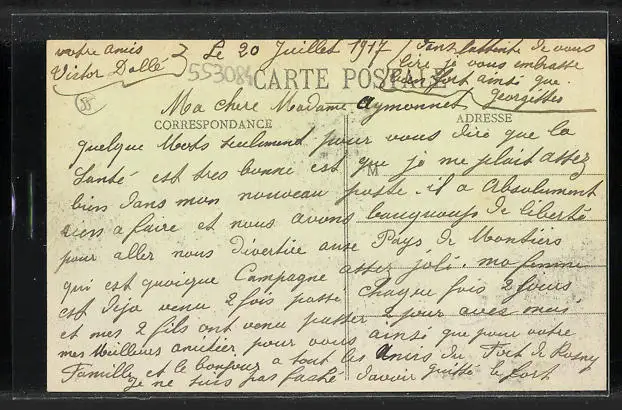 votre amis
Victor Dollé
Le 20 Juillet 1917
dans l'attente de vous
lire je vous embrasse
bien fort ainsi que
Georgettes
553084
CARTE POSTALE
Ma chere Madame Aymonnet
CORRESPONDANCE
ADRESSE
M
quelque Mots seulement pour vous dire que la
Santé est tres bonne est que je me plait assez
bien dans mon nouveau poste. il a Absolument
rien a faire et nous avons bauquoups de liberté
pour aller nous divertire ause Pays de Montiers
qui est quoique Campagne assez joli. ma femme
est deja venu 2 fois passe chaque fois 2 jours
et mes 2 fils ont venu passer 2 jour avec moi,
mes Meilleurs amitier pour vous ainsi que pour votre
Famille et le bonjour a tout les Amis du Fort de Rosny
Je ne suis pas faché d'avoir quitté le fort